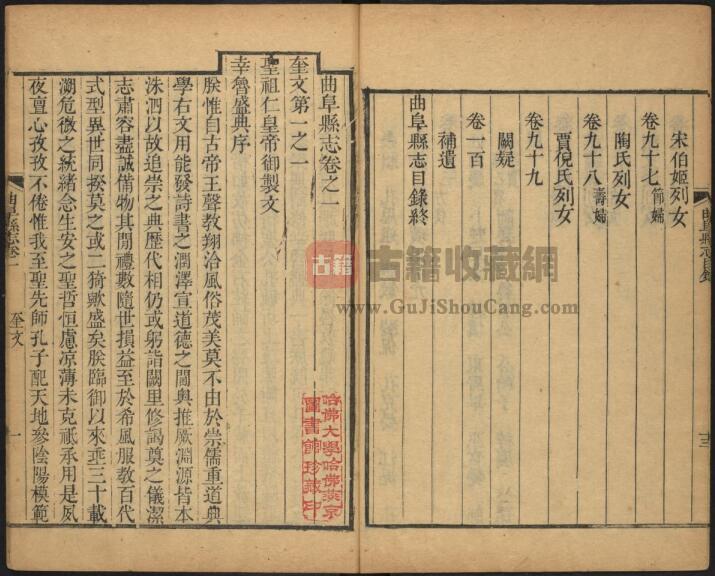 宋伯姬列女
卷九十七 節婦
陶氏列女
卷九十八 壽婦
賈倪氏列女
卷九十九
闕疑
卷一百
補遺
曲阜縣志目錄終
曲阜縣志目錄
十三
曲阜縣志卷之一
奎文第一之一
聖祖仁皇帝御製文
幸魯盛典序
朕惟自古帝王聲教翔洽風俗茂美莫不由於崇儒重道典
學右文用能發詩書之潤澤宣道德之閫奧推厥淵源皆本
洙泗以故追崇之典歷代相仍或躬詣闕里修謁奠之儀潔
志肅容盡誠備物其閒禮數隨世損益至於希風服教百代
式型異世同揆莫之或二猗歟盛矣朕臨御以來垂三十載
溯危微之統緒念生安之聖哲恒慮涼薄未克祗承用是夙
夜亶心孜孜不倦惟我至聖先師孔子配天地參陰陽模範
曲阜縣志卷一
奎文
一
哈佛大學哈佛燕京
圖書館珍藏印
古籍
古籍收藏網
www.GuJiShouCang.com